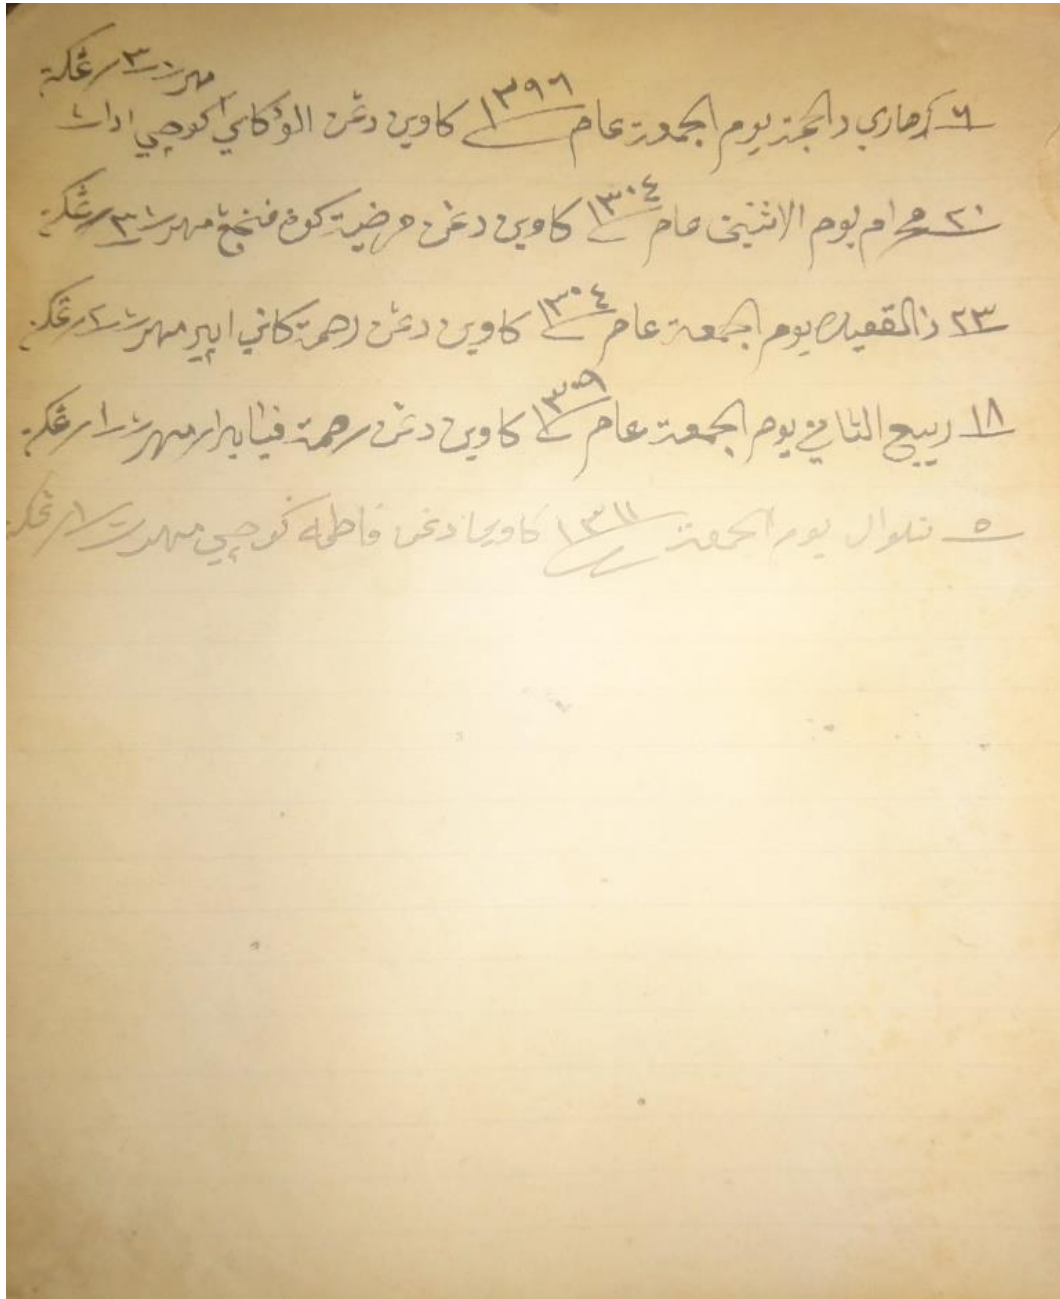 مهرڽ ٣ رڠكة
٦ هاري دالحجة يوم الجمعة عام ١٣٩٦ كاوين دڠن الوٴ كاتي كوچي ادات
٢٠ محرام يوم الاثنين عام ١٣٠٤ كاوين دڠن مرضية كوت فنجڠ مهرڽ ٣ رڠكة
٢٣ ذالقعيده يوم الجمعة عام ١٣٠٤ كاوين دڠن رحمة كاتي اير مهرڽ ٢ رڠكة
١٨ ربيع الثاني يوم الجمعة عام ١٣٠٦ كاوين دڠن رحمة مهرڽ ١ رڠكة
٥ شوال يوم الجمعة ١٣١١ كاوين دڠن فاطمه كوچي مهرڽ رڠكة